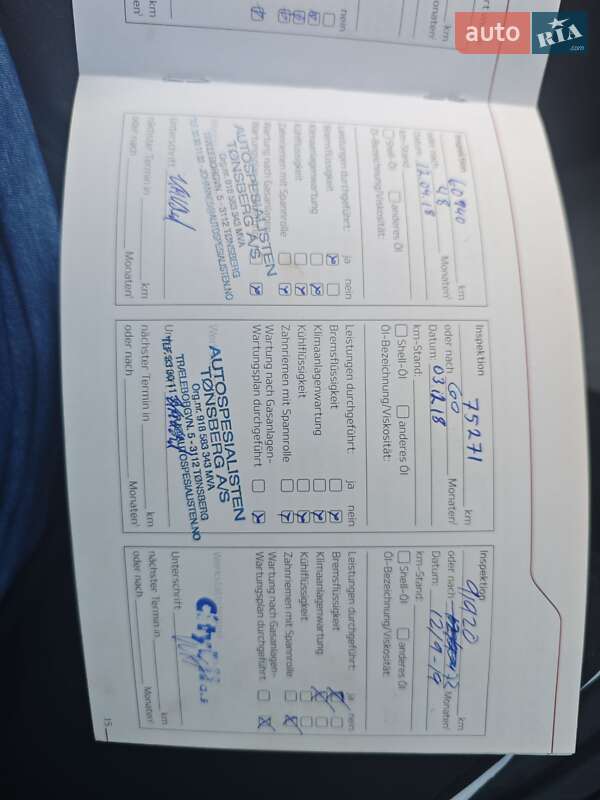 auto RIA .com
nein
Monaten¹
km
Inspektion 60940 km
oder nach 48 Monaten¹
Datum: 12.04.18
km-Stand:
Shell-Öl anderes Öl
Öl-Bezeichnung/Viskosität:
Leistungen durchgeführt: ja nein
Bremsflüssigkeit
Klimaanlagenwartung
Kühlflüssigkeit
Zahnriemen mit Spannrolle
Wartung nach Gasanlagen-
AUTOSPESIALISTEN
TØNSBERG A/S
Org.nr. 918 583 343 MVA
TRÆLEBORGVN. 5 - 3112 TØNSBERG
Unterschrift
nächster Termin in km
oder nach Monaten¹
Inspektion 75271 km
oder nach 60 Monaten¹
Datum: 03.12.18
km-Stand:
Shell-Öl anderes Öl
Öl-Bezeichnung/Viskosität:
Leistungen durchgeführt: ja nein
Bremsflüssigkeit
Klimaanlagenwartung
Kühlflüssigkeit
Zahnriemen mit Spannrolle
Wartung nach Gasanlagen-
Wartungsplan durchgeführt
AUTOSPESIALISTEN
TØNSBERG A/S
Org.nr. 918 583 343 MVA
TRÆLEBORGVN. 5 - 3112 TØNSBERG
nächster Termin in km
oder nach Monaten¹
Inspektion 91920 km
oder nach 72 Monaten¹
Datum: 12/9-19
km-Stand:
Shell-Öl anderes Öl
Öl-Bezeichnung/Viskosität:
Leistungen durchgeführt: ja nein
Bremsflüssigkeit
Klimaanlagenwartung
Kühlflüssigkeit
Zahnriemen mit Spannrolle
Wartung nach Gasanlagen-
Wartungsplan durchgeführt
Unterschrift
nächster Termin in km
oder nach Monaten¹
15